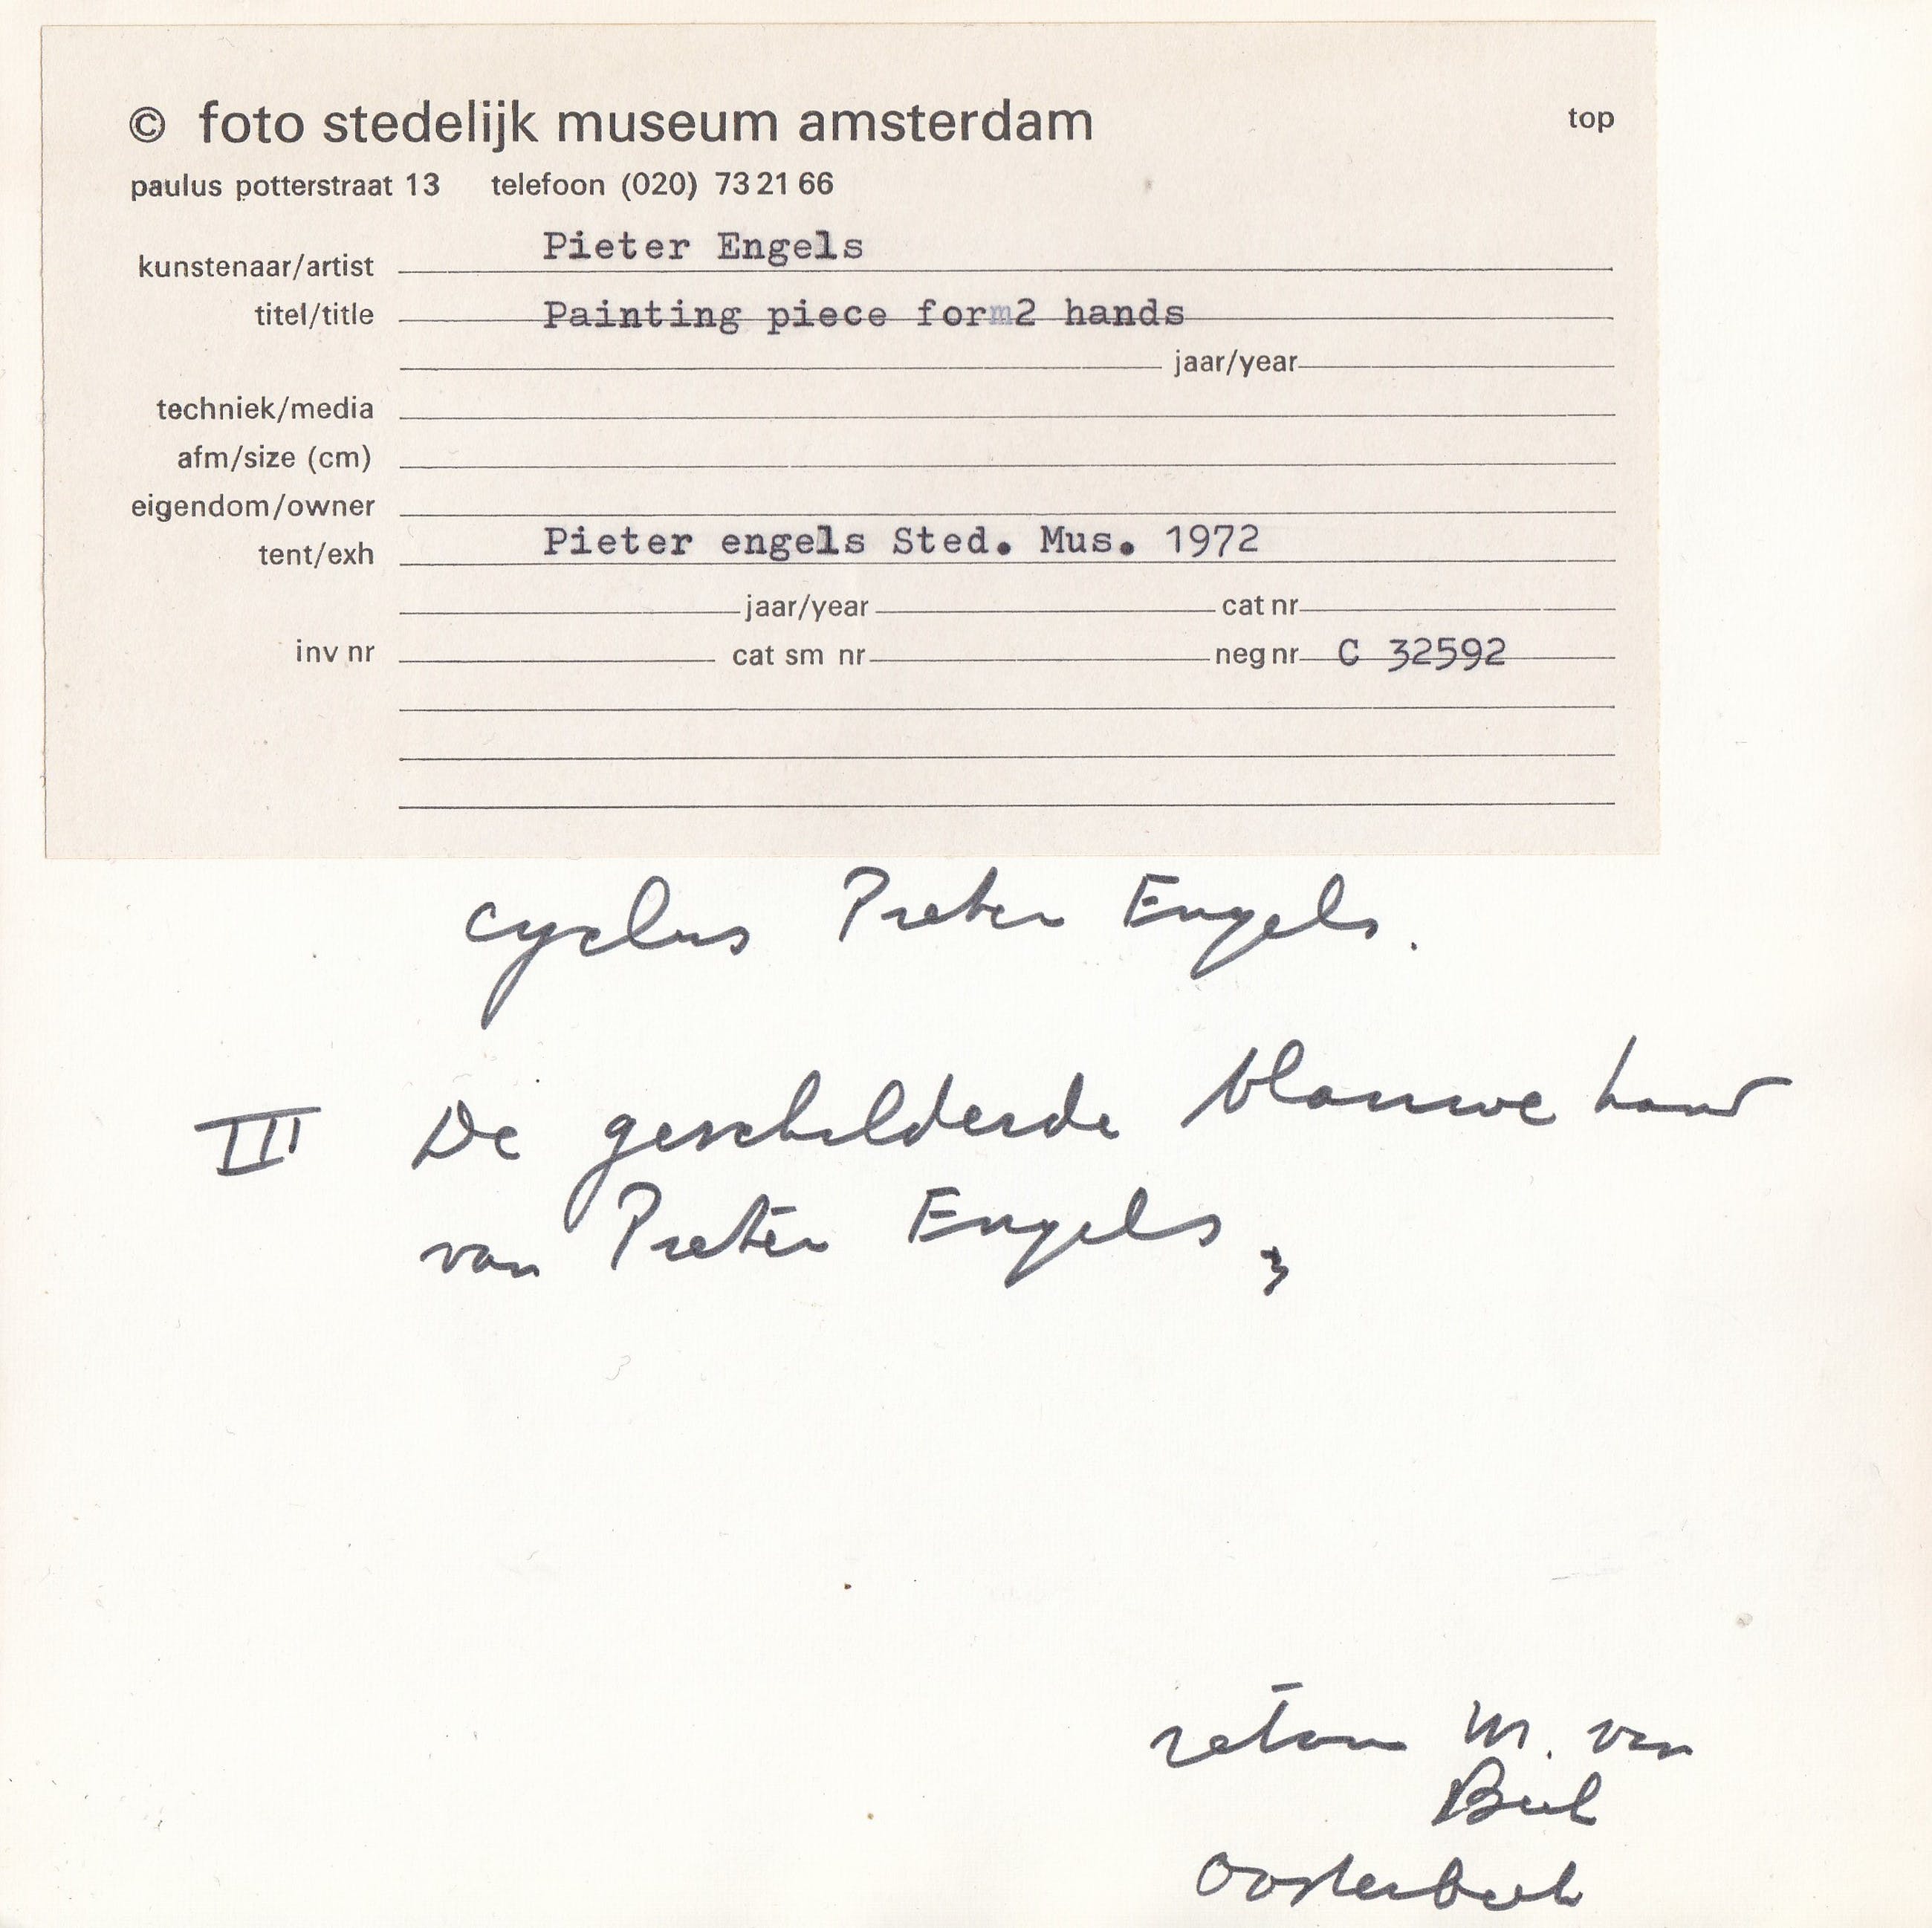 © foto stedelijk museum amsterdam top
paulus potterstraat 13 telefoon (020) 73 21 66
kunstenaar/artist Pieter Engels
titel/title Painting piece form2 hands
jaar/year
techniek/media
afm/size (cm)
eigendom/owner
tent/exh Pieter engels Sted. Mus. 1972
jaar/year cat nr
inv nr cat sm nr neg nr C 32592
cyclus Pieter Engels.
III De geschilderde blauwe hand
van Pieter Engels
retour M. van
Beek
Oosterbeek